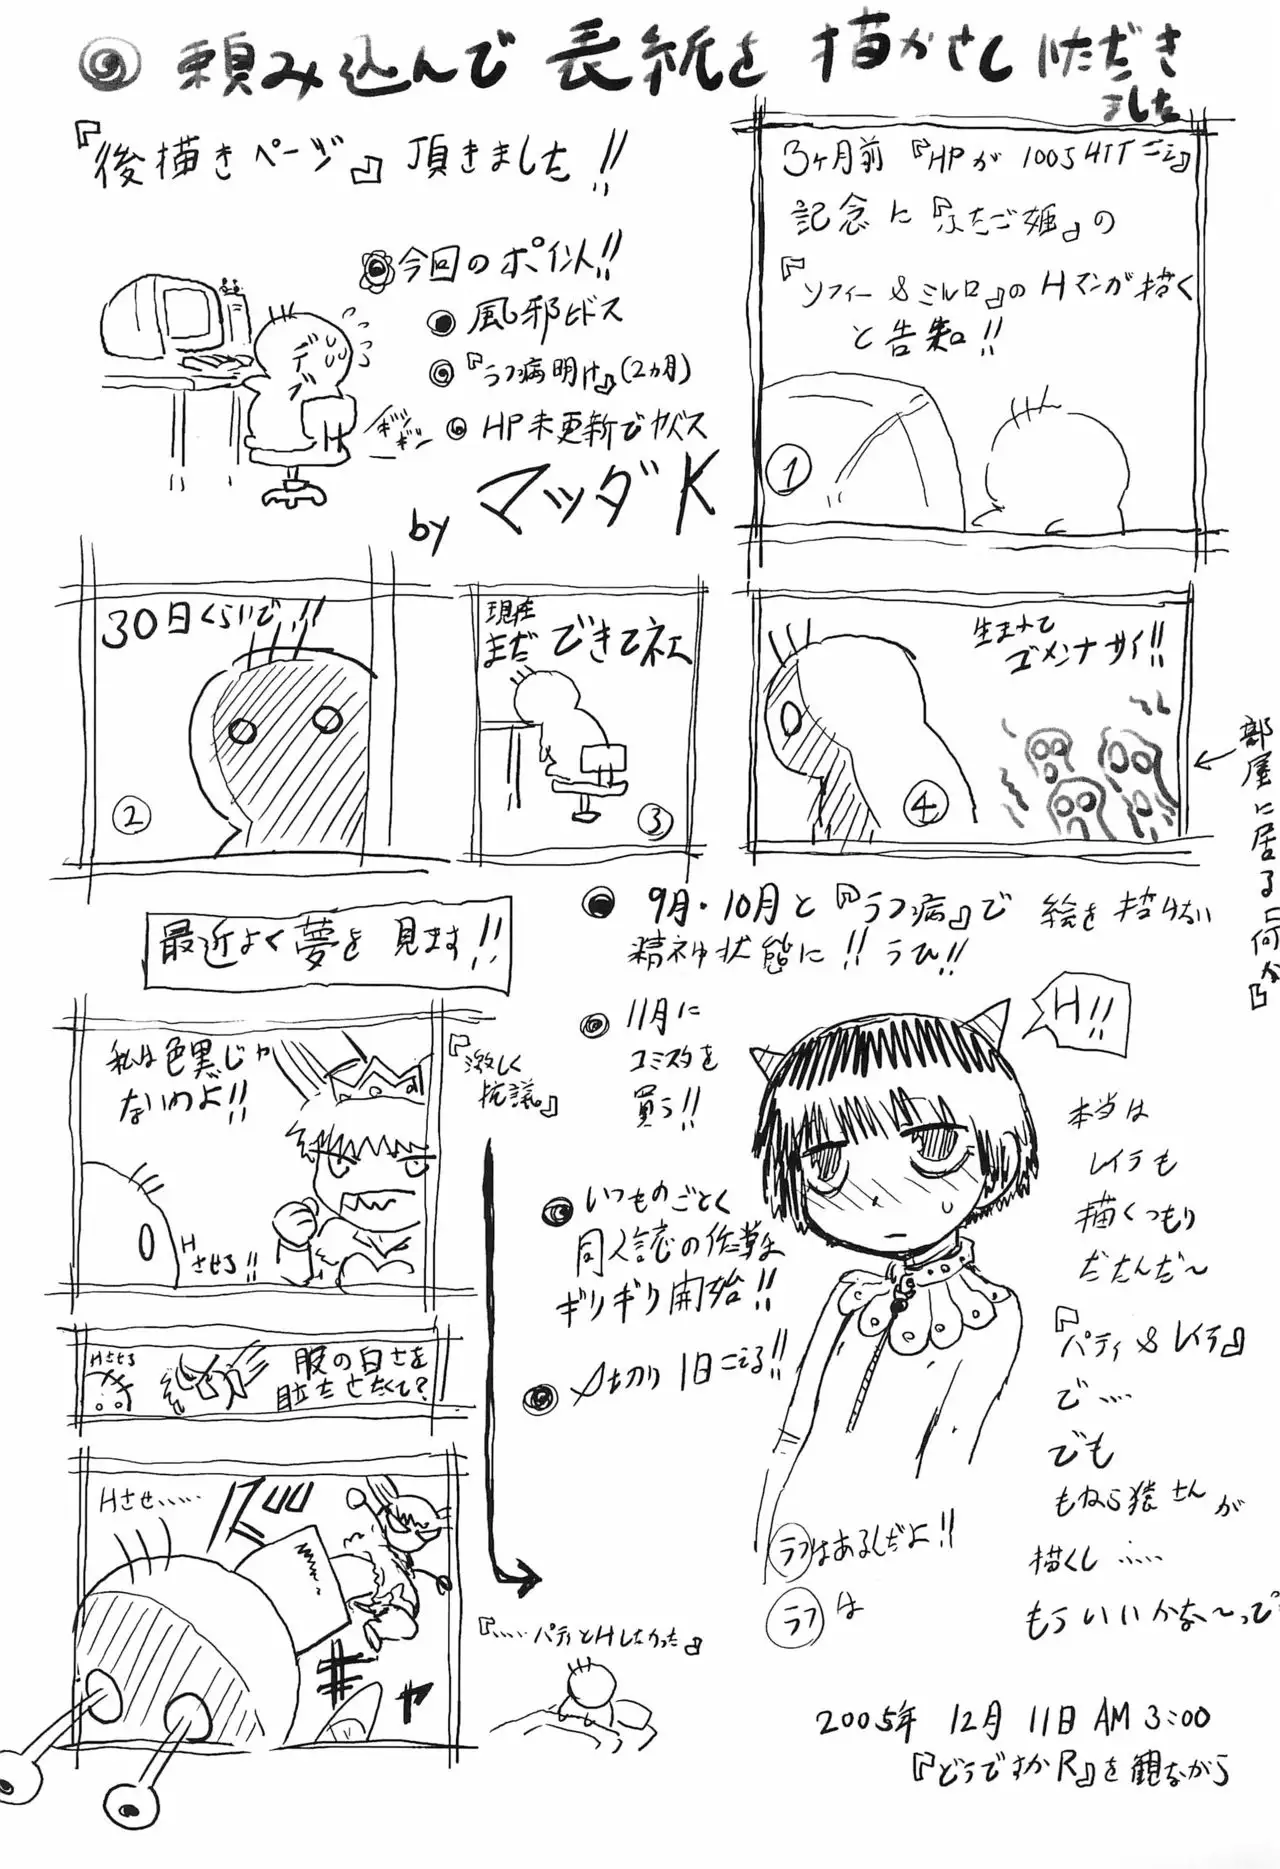 頼み込んで表紙を描かさしいただき
ました
『後描きページ』頂きました!!
今回のポイント!!
風邪ヒドス
『ラフ病明け』(2ヵ月)
HP未更新でヤバス
デブ
ギシギシ
by マッダK
3ヶ月前『HPが1005HITごえ』
記念に『ふたご姫』の
『ソフィー&ミルロ』のHマンガ描く
と告知!!
①
30日くらいで!!
②
現在
まだできてネェ
③
生まれて
ゴメンナサイ!!
④
部屋に居る『何か』
9月・10月と『ラフ病』で絵を描けない
精神状態に!!うひ!!
最近よく夢を見ます!!
私は色黒じゃ
ないわよ!!
Hさせろ!!
『激しく
抗議。』
Hさせろ
服の白さを
目立たせたくて?
Hさせ……
『……パティとHしたかった』
11月に
コミスタを
買う!!
いつものごとく
同人誌の作業は
ギリギリ開始!!
〆切り1日ごえる!!
H!!
本当は
レイラも
描くつもり
だたんだ〜
『パティ&レイラ』
で……
でも
もねら猿さんが
描くし……
もういいかな〜って
ラフはあるんだよ!!
ラフは
2005年 12月 11日 AM 3:00
『どうですかR』を観ながら